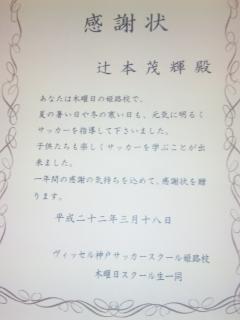 感謝状
辻本茂輝殿
あなたは木曜日の姫路校で、
夏の暑い日や冬の寒い日も、元気に明るく
サッカーを指導して下さいました。
子供たちも楽しくサッカーを学ぶことが出
来ました。
一年間の感謝の気持ちを込めて、感謝状を贈
ります。
平成二十二年三月十八日
ヴィッセル神戸サッカースクール姫路校
木曜日スクール生一同